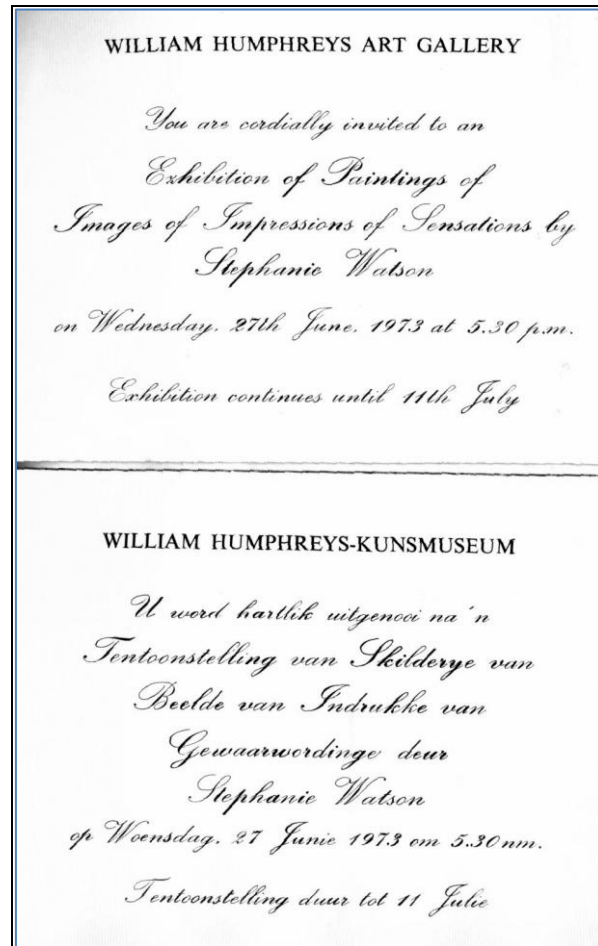 WILLIAM HUMPHREYS ART GALLERY
You are cordially invited to an
Exhibition of Paintings of
Images of Impressions of Sensations by
Stephanie Watson
on Wednesday, 27th June, 1973 at 5.30 p.m.
Exhibition continues until 11th July
WILLIAM HUMPHREYS-KUNSMUSEUM
U word hartlik uitgenooi na 'n
Tentoonstelling van Skilderye van
Beelde van Indrukke van
Gewaarwordinge deur
Stephanie Watson
op Woensdag, 27 Junie 1973 om 5.30 nm.
Tentoonstelling duur tot 11 Julie